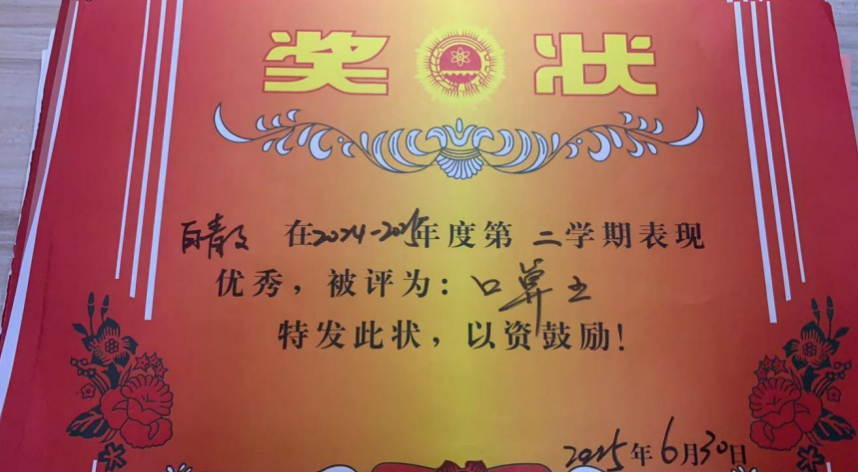 奖状
百青文 在2024-2025年度第二学期表现
优秀，被评为：口算王
特发此状，以资鼓励！
2025年6月30日